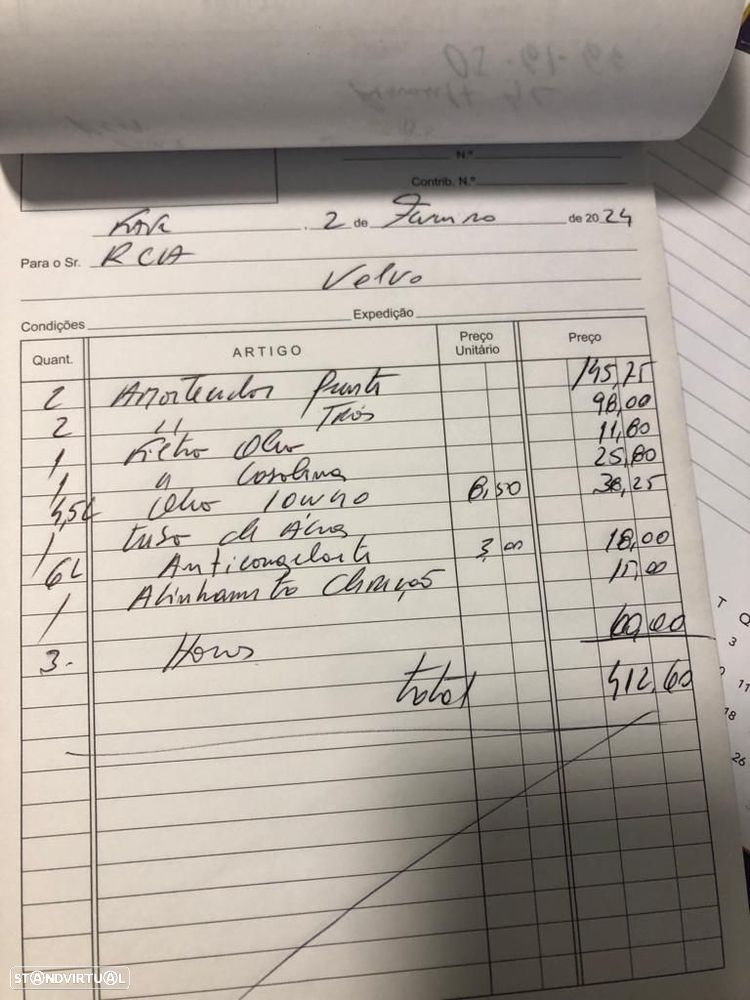 N.º
Contrib. N.º
, 2 de Janeiro de 2024
Para o Sr. RCIA
Volvo
Condições Expedição
Quant. ARTIGO Preço Unitário Preço
2 Amortecedor frente 145,75
2 " Trás 98,00
1 Filtro Oleo 11,80
1 " Gasolina 25,80
4,5L Oleo 10W40 8,50 38,25
1 tubo de Água
6L Anticongelante 3,00 18,00
1 Alinhamento Direção 15,00
3- Horas 60,00
total 412,60
STANDVIRTUAL